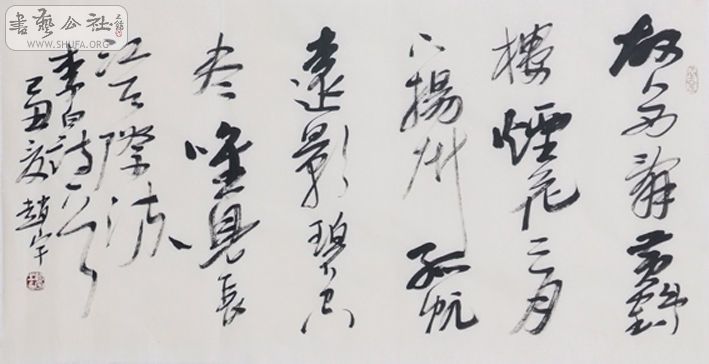 故人西辞黄鶴
樓煙花三月
下揚州孤帆
遠影碧空
尽唯見長
江天際流
李白詩一首
己丑夏趙宇
書藝公社
WWW.SHUFA.ORG